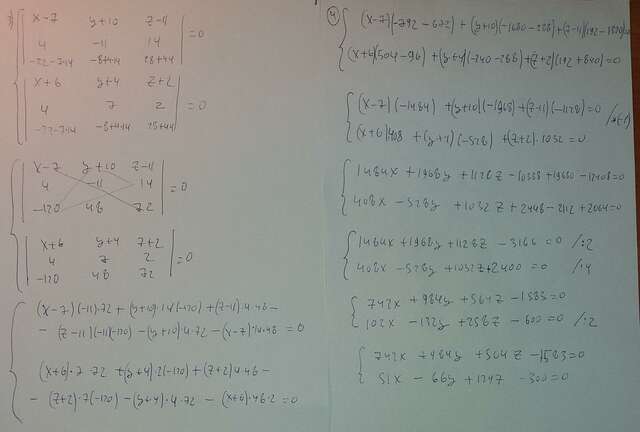 | x-7 y+10 z-11 |
| 4 -11 14 | =0
| -22-7·14 -8+4·14 28+44 |
| x+6 y+4 z+2 |
| 4 7 2 | =0
| -22-7·14 -8+4·14 28+44 |
| x-7 y+10 z-11 |
| 4 -11 14 | =0
| -120 48 72 |
| x+6 y+4 z+2 |
| 4 7 2 | =0
| -120 48 72 |
(x-7)(-11)·72 + (y+10)·14(-120) + (z-11)·4·48 -
- (z-11)(-11)(-120) - (y+10)·4·72 - (x-7)·14·48 = 0
(x+6)·7·72 + (y+4)·2(-120) + (z+2)·4·48 -
- (z+2)·7(-120) - (y+4)·4·72 - (x+6)·48·2 = 0
(x-7)(-792-672) + (y+10)(-1680-288) + (z-11)(192-1320)=0
(x+6)(504-96) + (y+4)(-240-288) + (z+2)(192+840)=0
(x-7)(-1484) + (y+10)(-1968) + (z-11)(-1128)=0 /·(-1)
(x+6)408 + (y+4)(-528) + (z+2)·1032=0
1484x + 1968y + 1128z - 10388 + 19680 - 12408=0
408x - 528y + 1032z + 2448 - 2112 + 2064=0
1484x + 1968y + 1128z - 3166 = 0 /:2
408x - 528y + 1032z + 2400 = 0 /:4
742x + 984y + 564z - 1583=0
102x - 132y + 258z - 600=0 /:2
742x + 984y + 564z - 1583=0
51x - 66y + 124z - 300=0